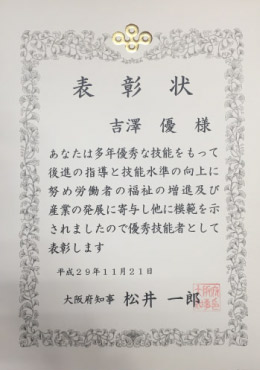 表彰状
吉澤 優 様
あなたは多年優秀な技能をもって
後進の指導と技能水準の向上に
努め労働者の福祉の増進及び
産業の発展に寄与し他に模範を示
されましたので優秀技能者として
表彰します
平成29年11月21日
大阪府知事 松井 一郎